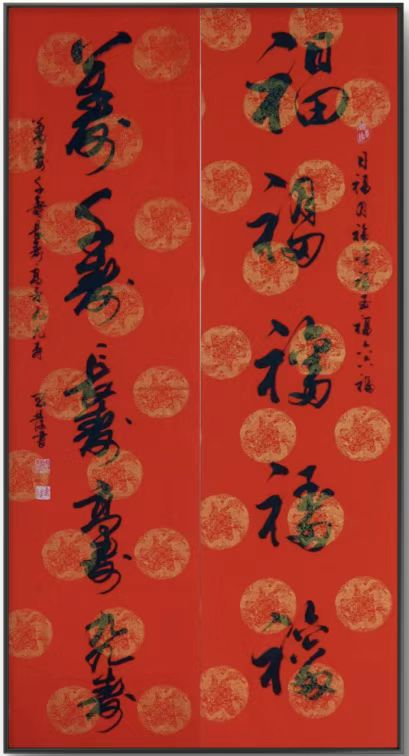 福福福福福
日福月福福玉福六六福
萬壽千壽長壽高壽壽
萬壽千壽長壽高壽九九壽
書